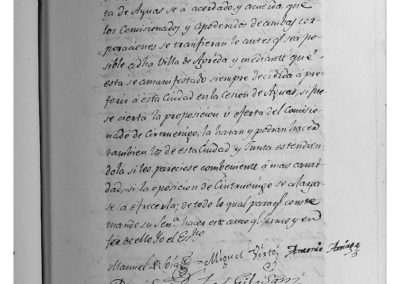 ta de Aguas se á acordado, y acuerda que
los Comisionados y apoderados de ambas cor-
poraciones se transfieran lo antes qe. sea po-
sible a dha Villa de Agreda y mediante que
esta se á manifestado siempre decidida á pre-
ferir á esta Ciudad en la Cesion de Aguas, si fue-
se cierta la proposicion u oferta del Comisio-
nado de Cintruenigo, la haran y podran hacer
tambien los de esta Ciudad y Junta estendien-
dola si les pareciese combeniente á mas canti-
dad, si la oposicion de Cintruenigo se alarga-
se á ofrecerla; de todo lo qual para qe. conste
mando su Sa. hacer este auto y firmó y en
fee de ello Yo el Esno.
Manuel de Miguel Antonio